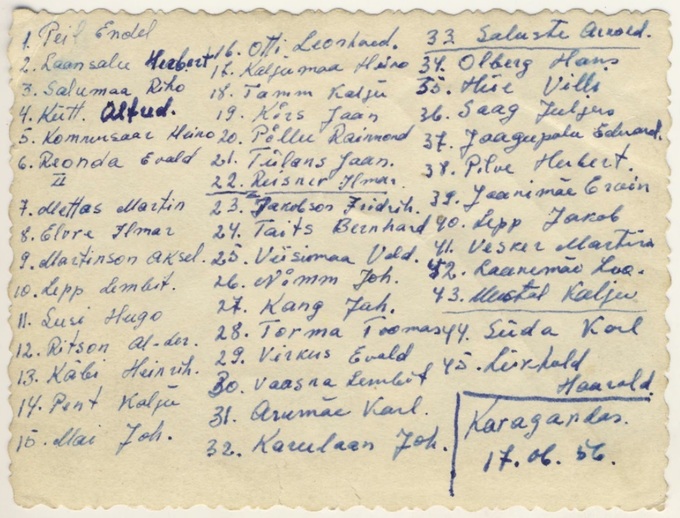 1. Peil Endel
2. Laansalu Herbert
3. Salumaa Riho
4. Kütt. Alfred.
5. Kommusaar Heino
6. Evald
II
7. Mettas Martin
8. Elvre Ilmar
9. Martinson Aksel.
10. Lepp Lembit.
11. Susi Hugo
12. Ritson Al-der.
13. Käbi Heinrih.
14. Pent Kalju
15. Mai Joh.
16. Otti Leonhard.
17. Kaljumaa Heino
18. Tamm Kalju
19. Kõrs Jaan
20. Põllu Rainmond
21. Tiilans Jaan.
22. Reisner Ilmar.
23. Jakobson Fridrih.
24. Taits Bernhard
25. Viisimaa Vold.
26. Nõmm Joh.
27. Kang Joh.
28. Torma Toomas
29. Virkus Evald
30. Vaasna Lembit
31. Arumäe Karl.
32. Karulaan Joh.
33. Saluste Arved.
34. Olberg Hans
35. Hiie Villi
36. Saag Julgus
37. Jaagupalu Eduard.
38. Pilve Herbert.
39. Jaanimäe Ervin
40. Lepp Jakob
41. Vesker Martin
42. Laanemäe
43. Mustal Kalju
44. Süda Karl
45. Harald.
Karagandas.
17.06.56.